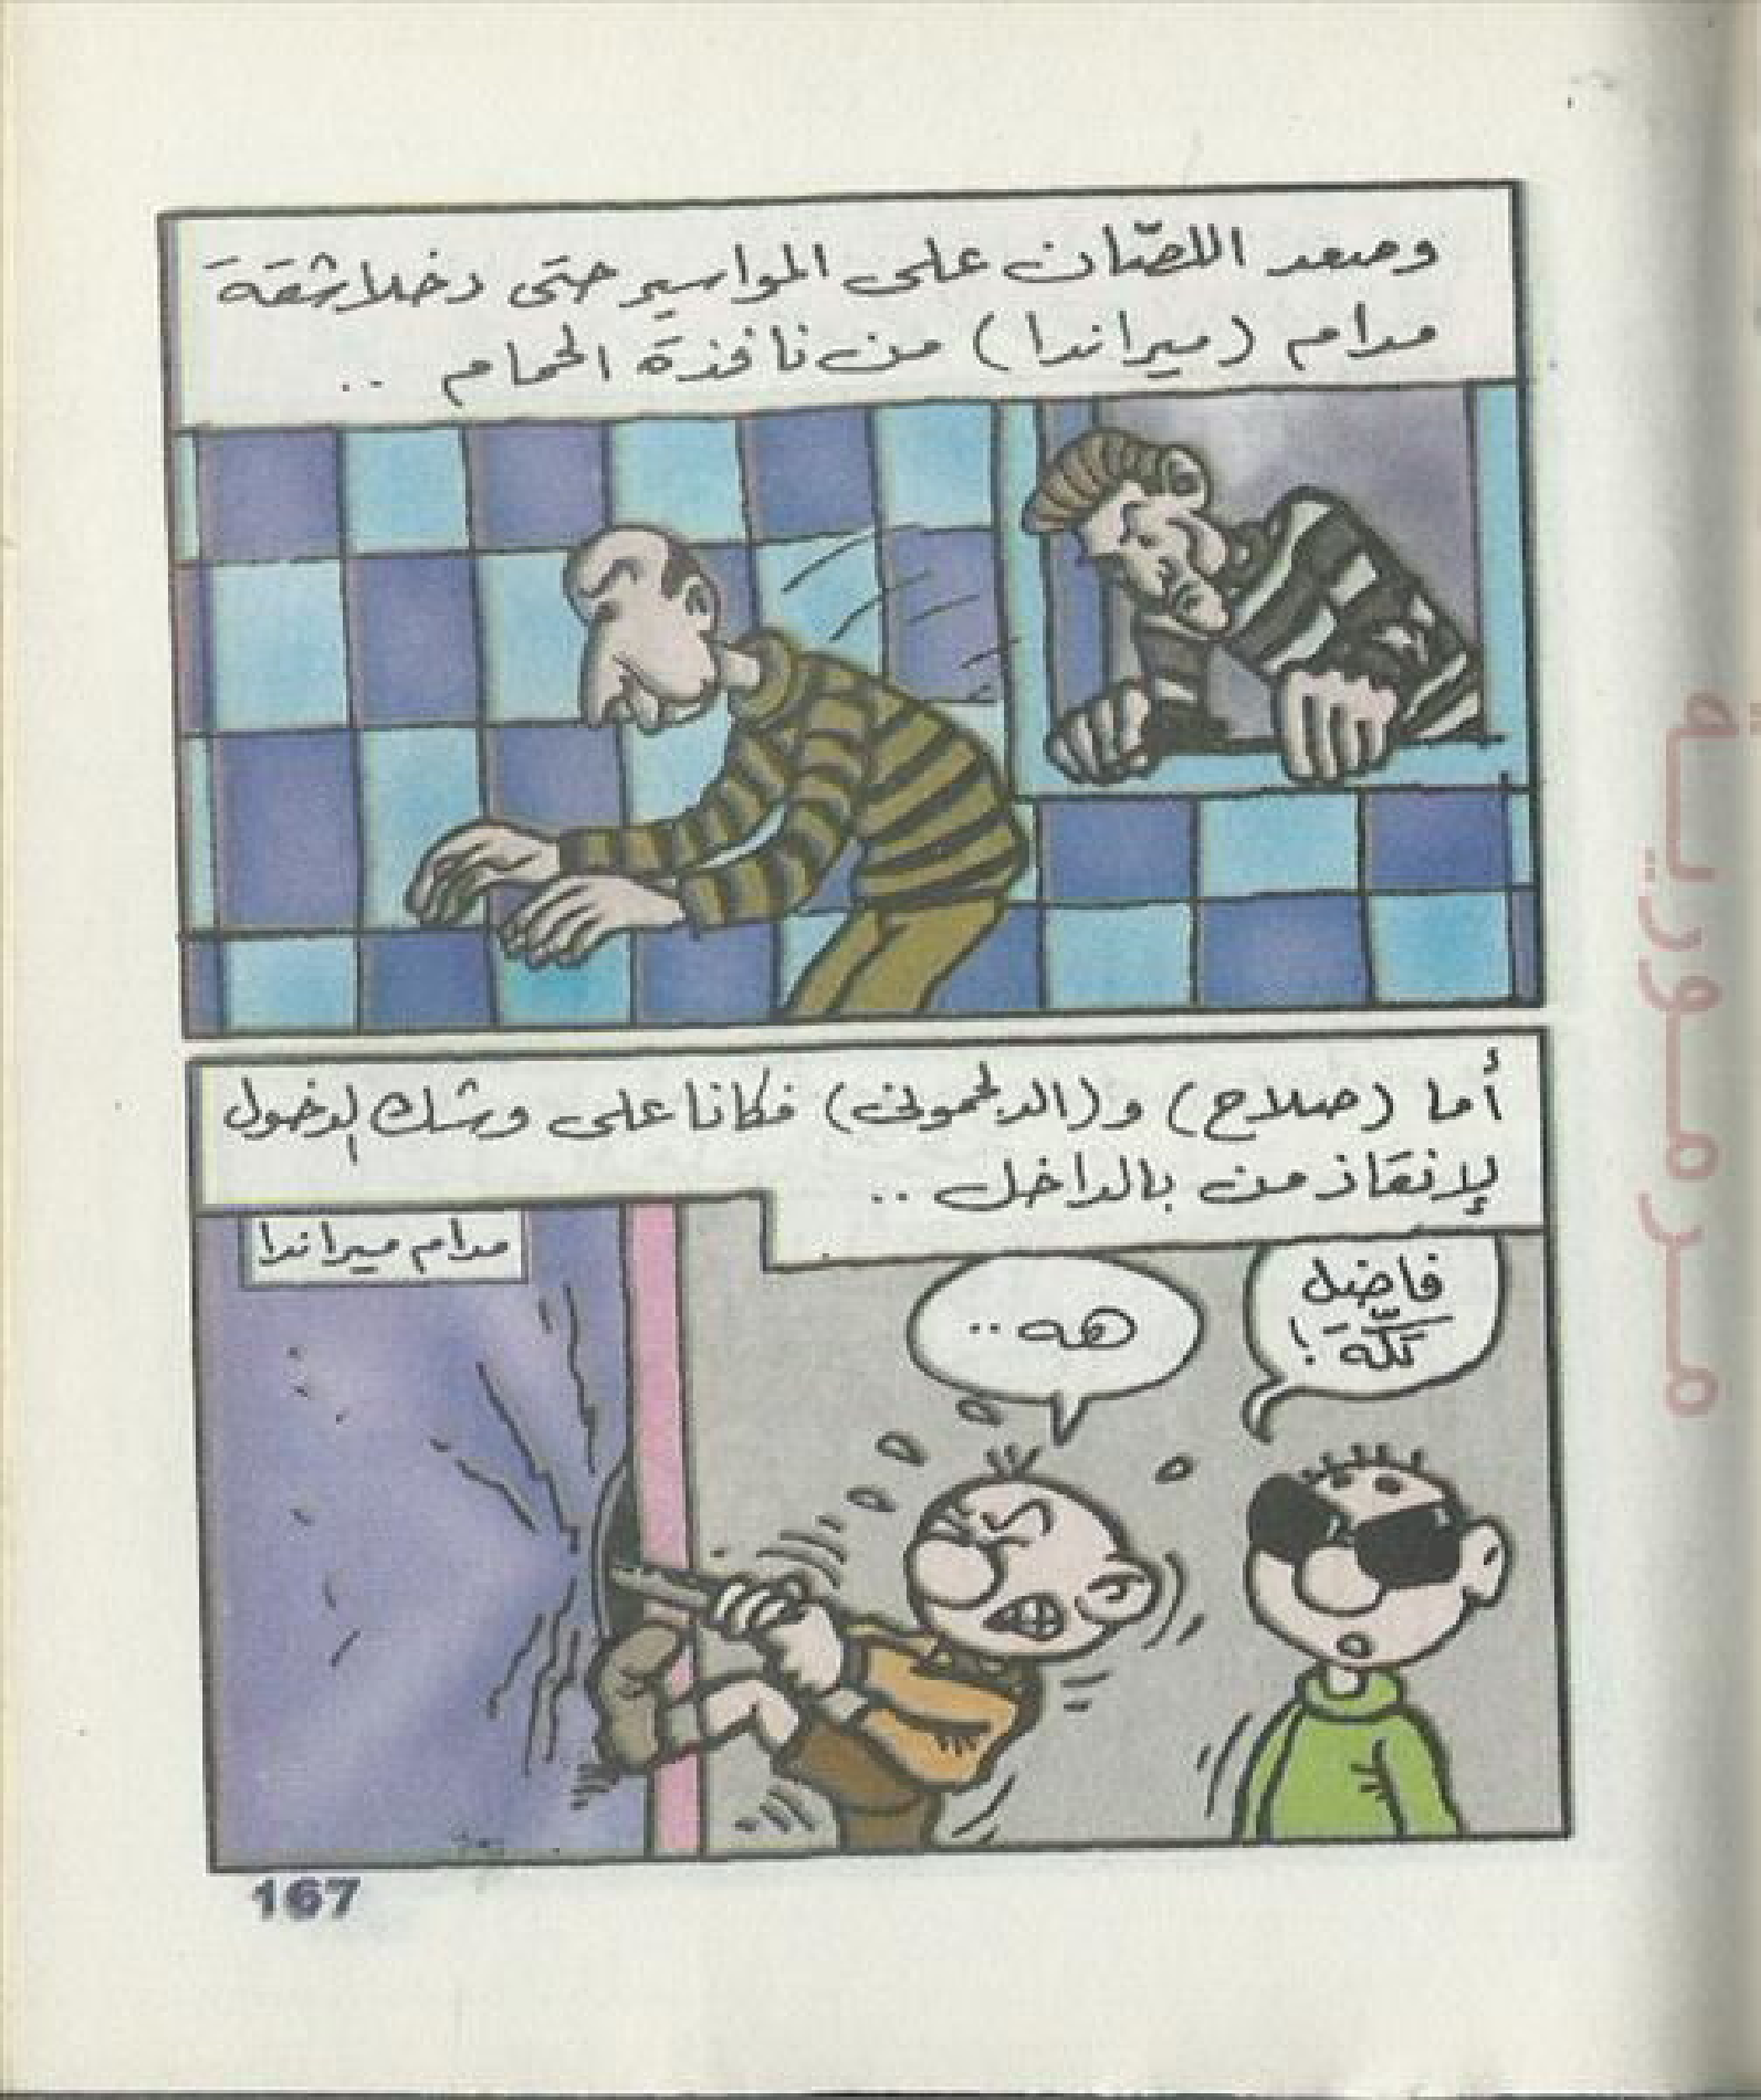 وصعد اللصّان على المواسير حتى دخلا شقة
مدام (ميراندا) من نافذة الحمام ..
أما (صلاح) و(الدلجمونى) فكانا على وشك الدخول
لإنقاذ من بالداخل ..
مدام ميراندا
فاضل
تكّة !
هه ..
167
مرمورية